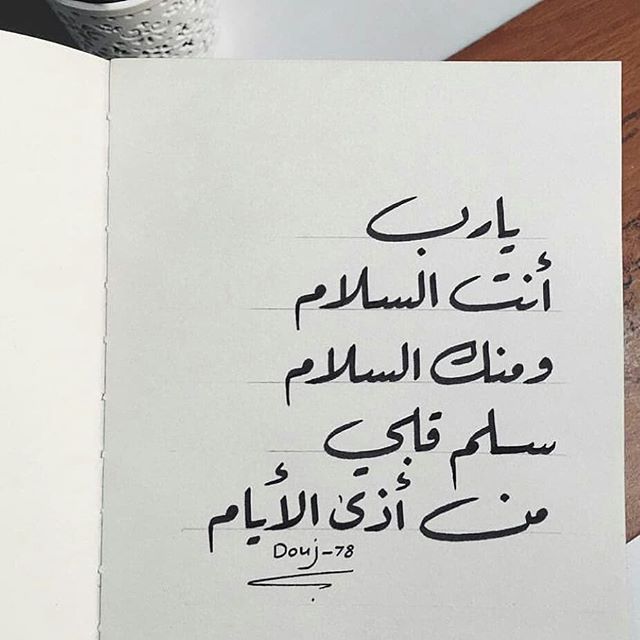 يارب
أنت السلام
ومنك السلام
سلم قلبي
من أذى الأيام
Douj-78